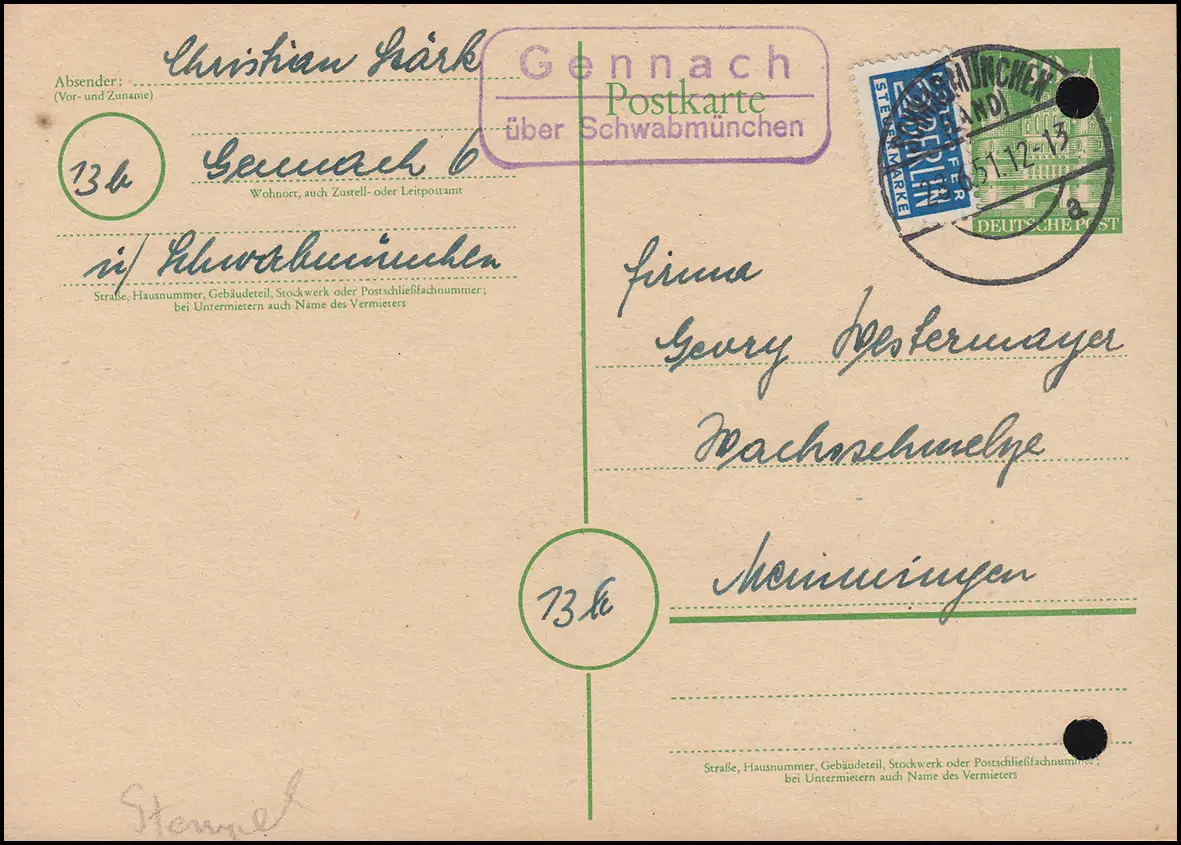 Absender: Christian Stärk
(Vor- und Zuname)
13b
Gennach 6
Wohnort, auch Zustell- oder Leitpostamt
ü/ Schwabmünchen
Straße, Hausnummer, Gebäudeteil, Stockwerk oder Postschließfachnummer;
bei Untermietern auch Name des Vermieters
Gennach
über Schwabmünchen
Postkarte
NOTOPFER
BERLIN
STEUERMARKE
SCHWABMÜNCHEN
(LAND)
6.51.12-13
a
DEUTSCHE POST
Firma
Georg Westermayer
Wachsschmelze
Memmingen
13b
Straße, Hausnummer, Gebäudeteil, Stockwerk oder Postschließfachnummer;
bei Untermietern auch Name des Vermieters
Stempel